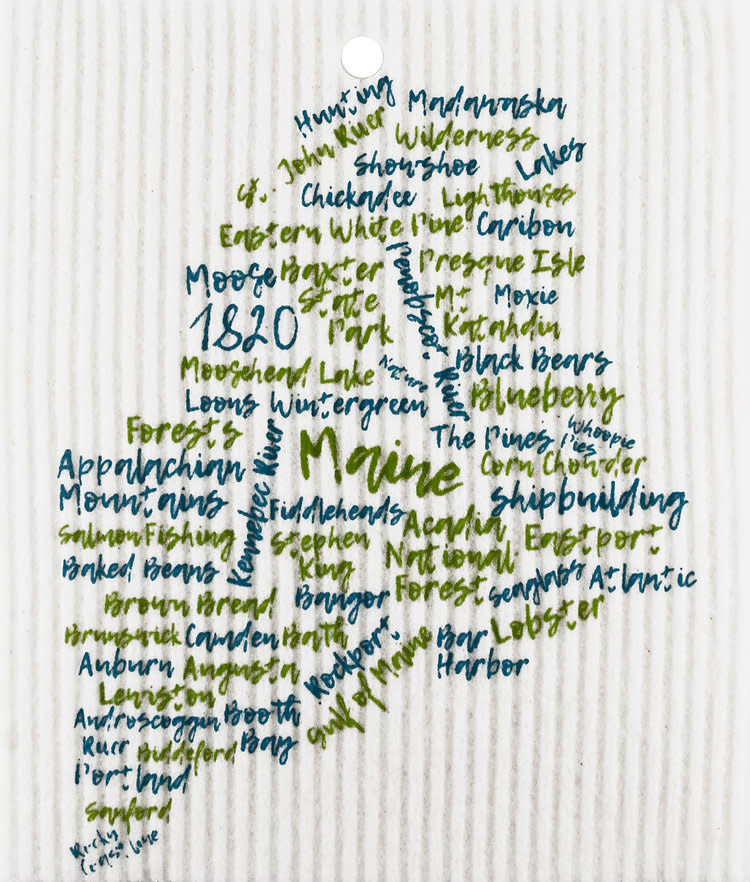 Hunting
Madawaska
St. John River
Wilderness
Snowshoe
Lakes
Chickadee
Lighthouses
Eastern White Pine
Caribou
Moose
Baxter
State
Park
Penobscot River
Presque Isle
Mt
Katahdin
Moxie
1820
Moosehead Lake
Nature
Black Bears
Loons
Wintergreen
Blueberry
Forests
Maine
The Pines
Whoopie
Pies
Appalachian
Mountains
Kennebec River
Corn Chowder
Fiddleheads
Shipbuilding
Salmon
Fishing
Stephen
King
Acadia
National
Forest
Eastport
Baked Beans
Bangor
Seaglass
Atlantic
Brown Bread
Lobster
Brunswick
Camden
Bath
Rockport
Gulf of Maine
Bar
Harbor
Auburn
Augusta
Lewiston
Androscoggin
Booth
Bay
Rurr
Biddeford
Portland
Sanford
Rocky
Coast line